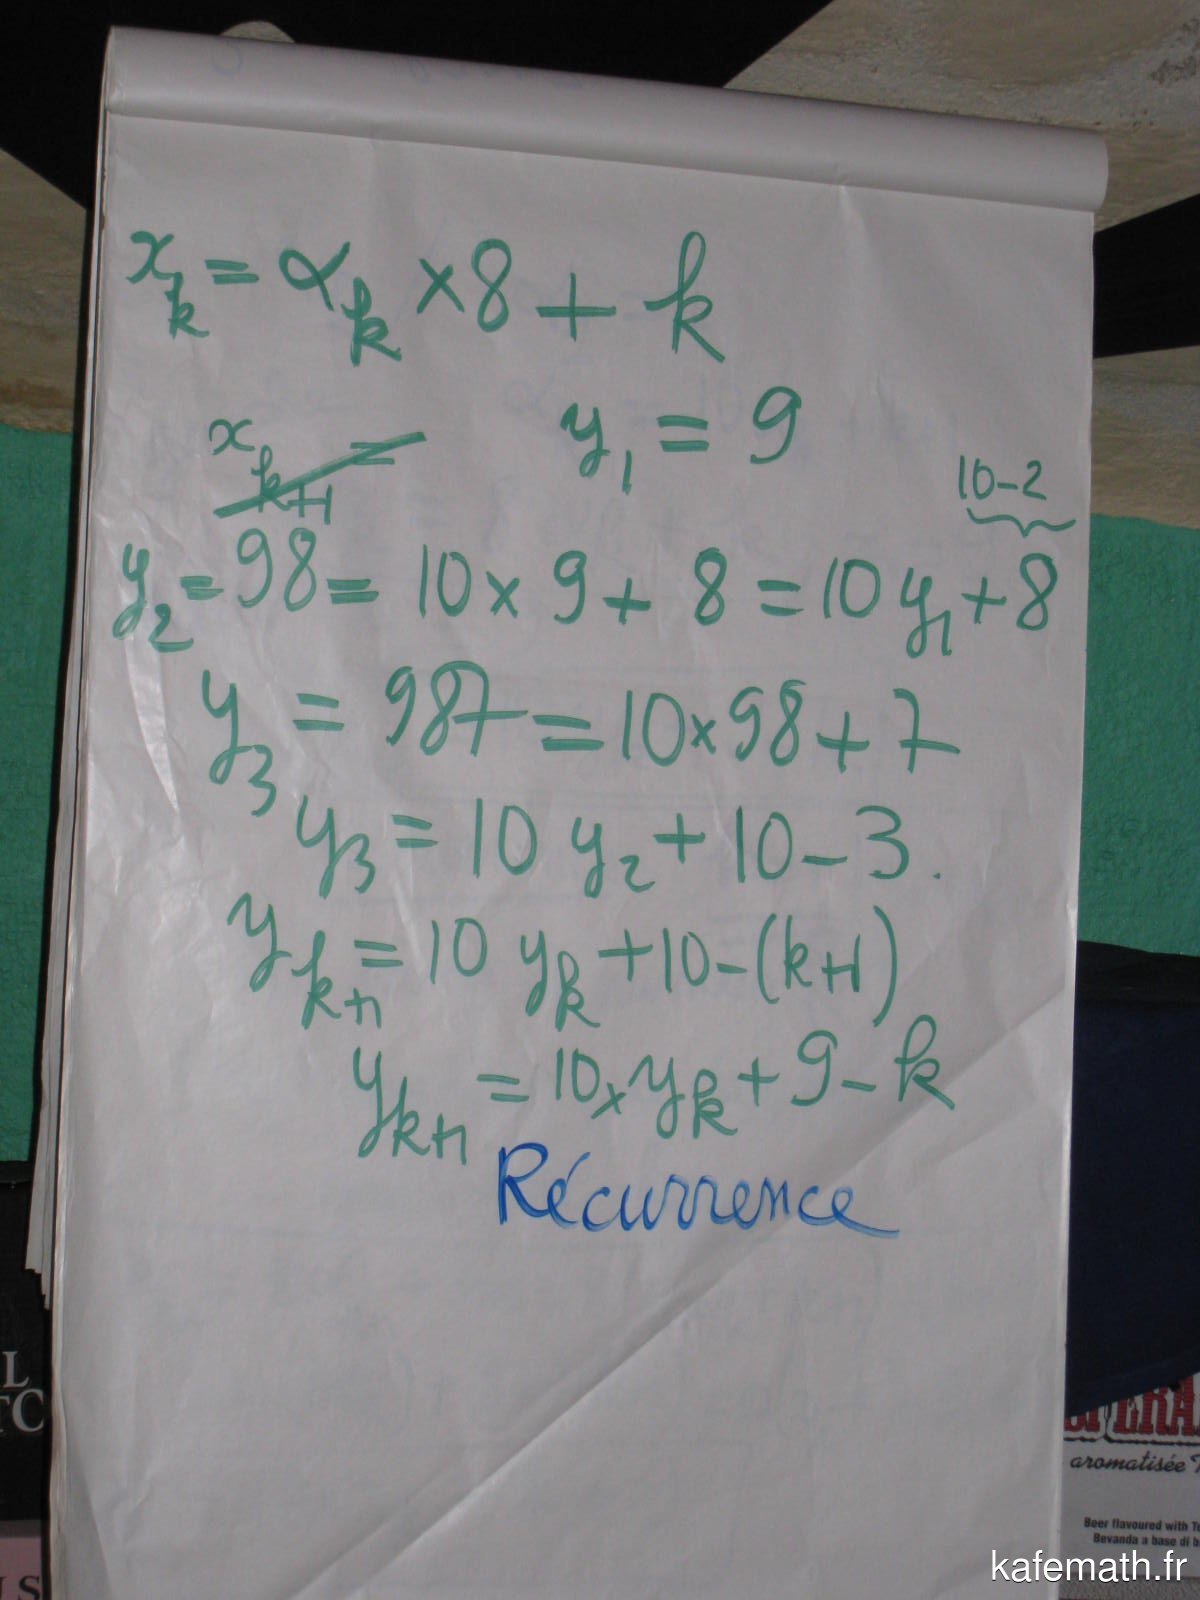 x_k = α_k × 8 + k
y_1 = 9
x_{k+1} =
10-2
y_2 = 98 = 10 × 9 + 8 = 10 y_1 + 8
y_3 = 987 = 10 × 98 + 7
y_3 = 10 y_2 + 10 - 3.
y_{k+1} = 10 y_k + 10 - (k+1)
y_{k+1} = 10 × y_k + 9 - k
Récurrence
aromatisée
Beer flavoured with
Bevanda a base di
kafemath.fr